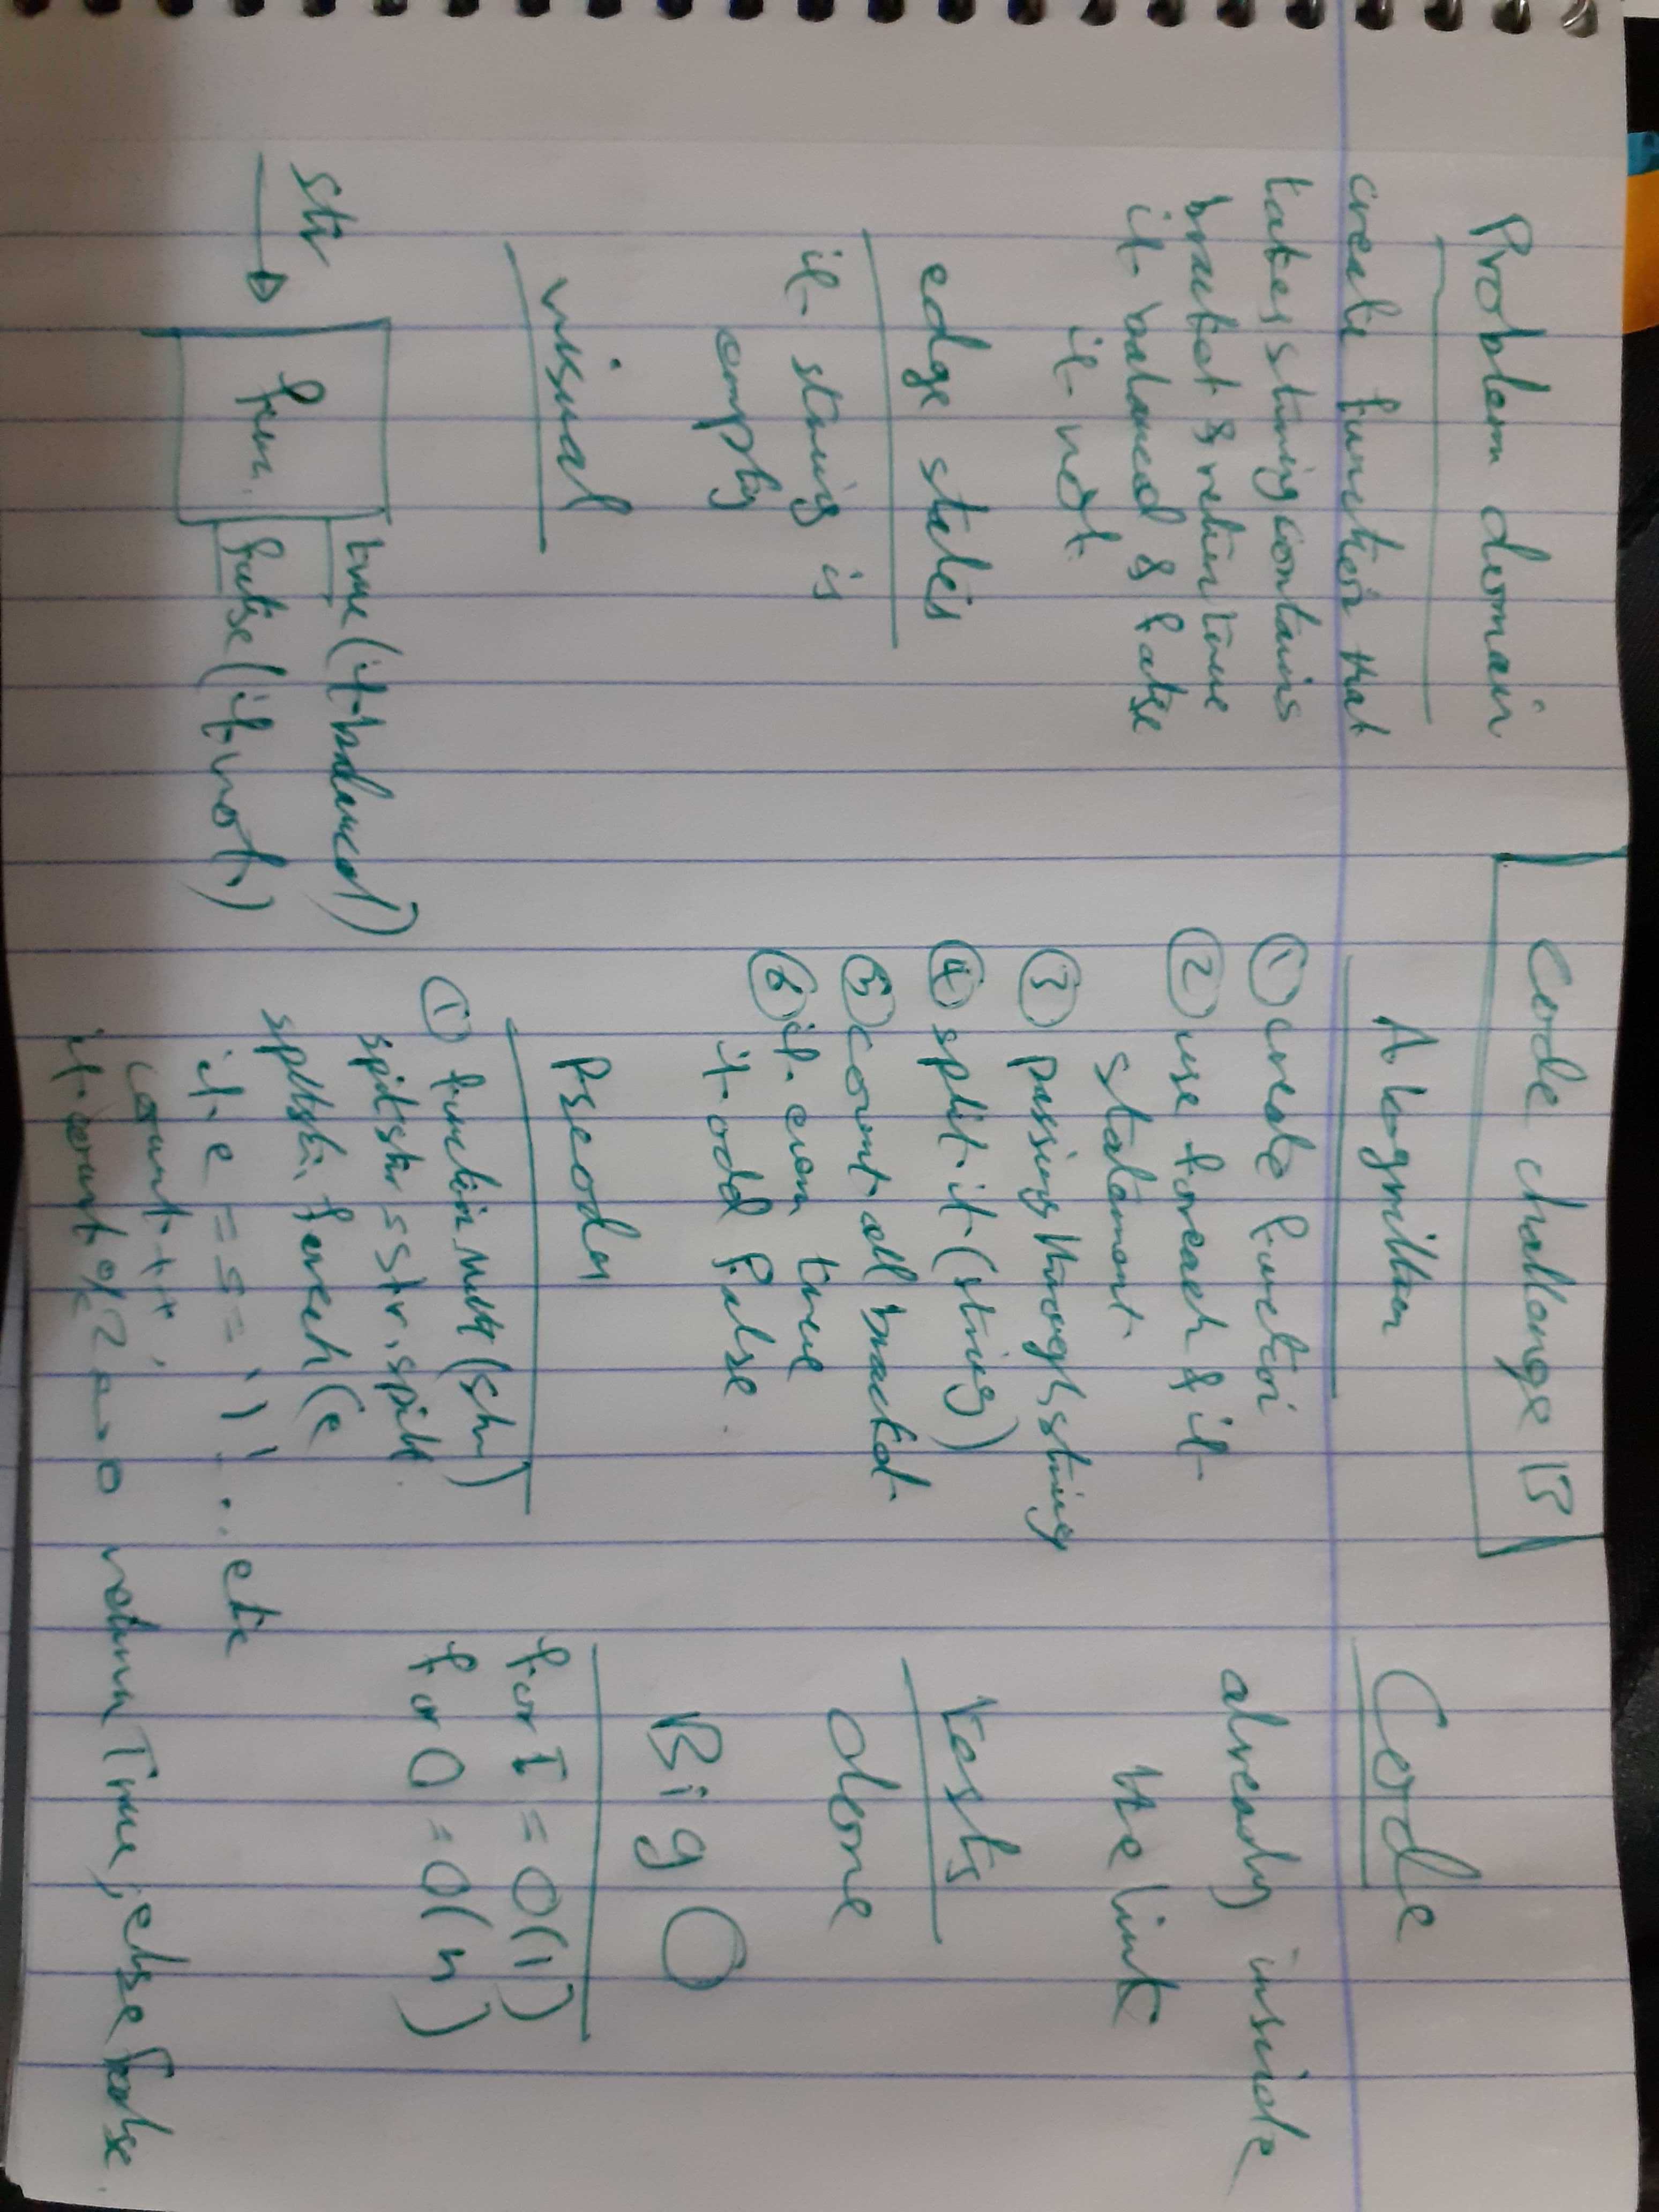 Code challenge 13
Problem domain
create function that
takes string contains
bracket & return true
if balanced & false
if not
edge states
if string is
empty
visual
str
fun.
true (if balanced)
false (if not)
Alogrithm
① create function
② use foreach & if
statement
③ passing through string
④ split it (string)
⑤ count all bracket
⑥ if even true
if odd false.
Pseodu
① function (str)
splitstr = str.split
foreach (e
if e === ')' ... etc
count ++;
if count % 2 = 0 return True, else false.
Code
already inside
the link
tests
done
Big O
for I = O(1)
for O = O(n)